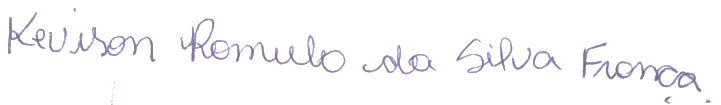 Kevison Romulo da Silva França.